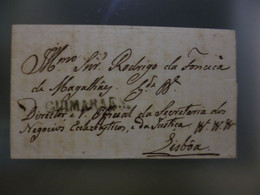 Illmo Snr. Rodrigo da Fonceca
de Magalhães
GUIMARAES
Director e 1º Official da Secretaria dos
Negocios Ecclesiasticos, e da Justiça
Lisbôa